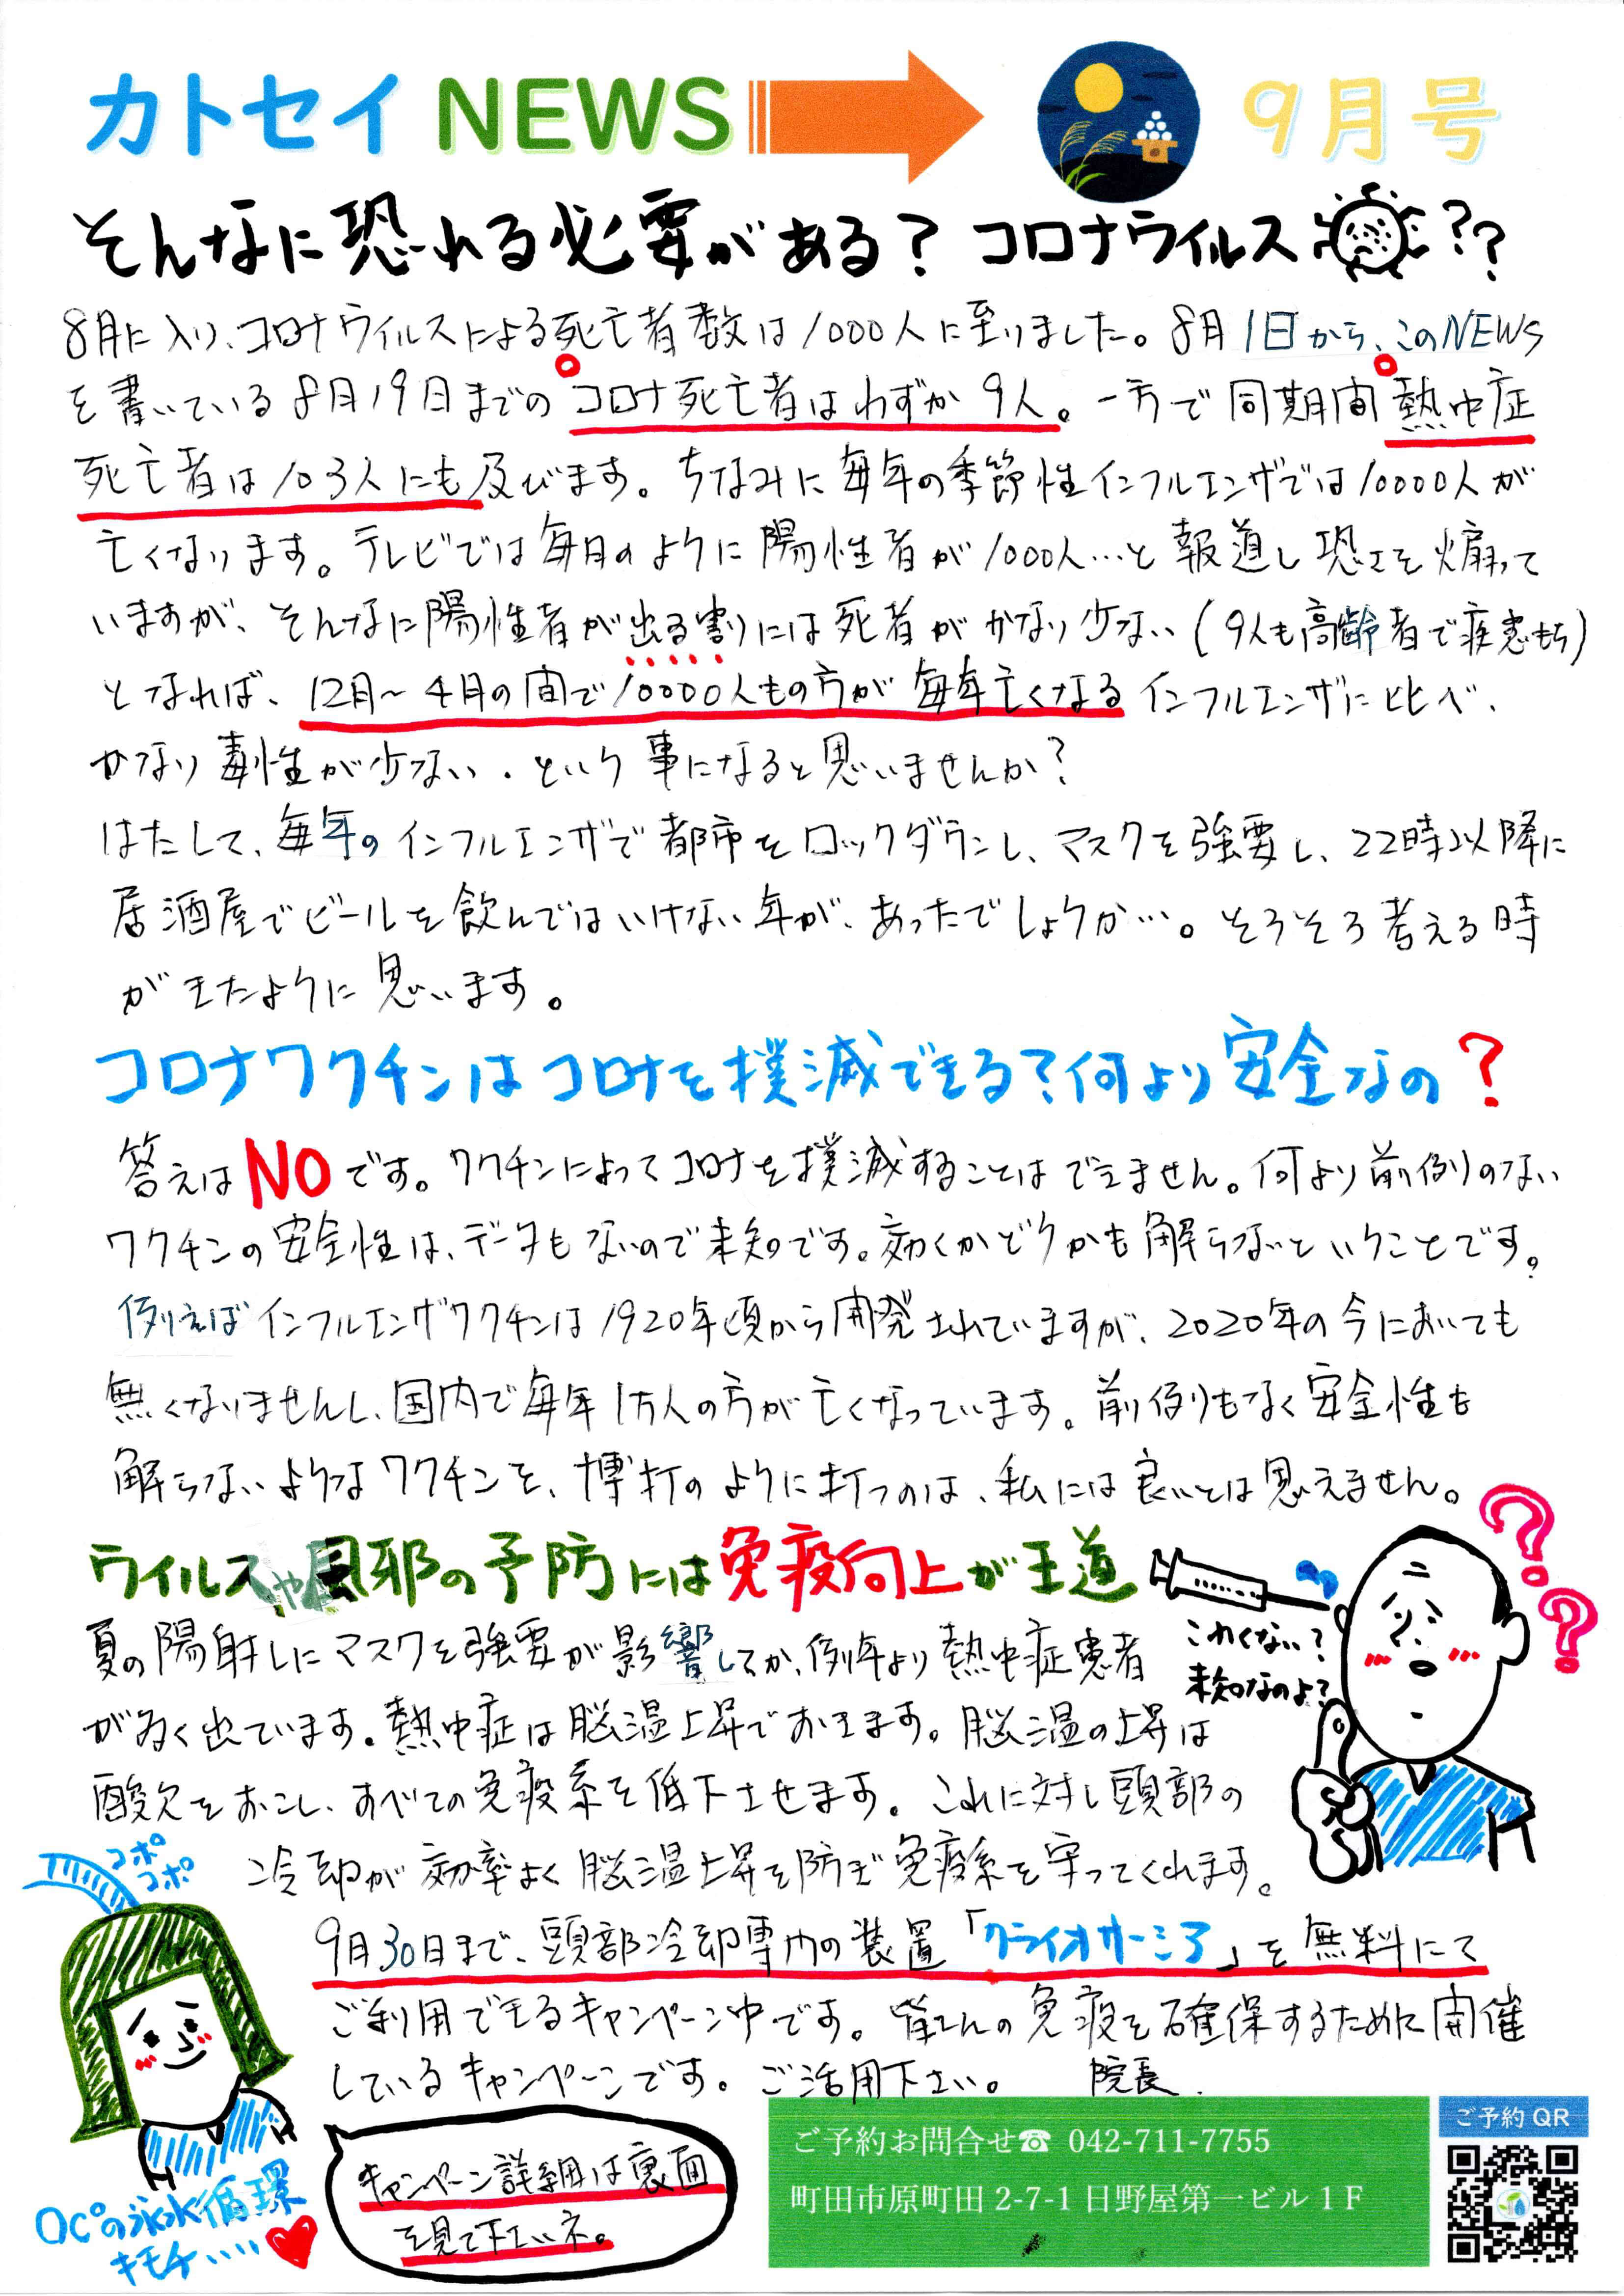 カトセイ NEWS 9月号
そんなに恐れる必要がある? コロナウイルス??
8月に入り、コロナウイルスによる死亡者数は1000人に至りました。8月1日から、このNEWS
を書いている8月19日までのコロナ死亡者はわずか9人。一方で同期間熱中症
死亡者は103人にも及びます。ちなみに毎年の季節性インフルエンザでは10000人が
亡くなります。テレビでは毎日のように陽性者が1000人…と報道し恐さを煽って
いますが、そんなに陽性者が出る割りには死者がかなり少ない(9人も高齢者で疾患もち)
となれば、12月〜4月の間で10000人もの方が毎年亡くなるインフルエンザに比べ、
かなり毒性が少ない.という事になると思いませんか?
はたして、毎年のインフルエンザで都市をロックダウンし、マスクを強要し、22時以降に
居酒屋でビールを飲んではいけない年が、あったでしょうか…。そろそろ考える時
がきたように思います。
コロナワクチンはコロナを撲滅できる?何より安全なの?
答えはNOです。ワクチンによってコロナを撲滅することはできません。何より前例のない
ワクチンの安全性は、データもないので未知です。効くかどうかも解らないということです。
例えばインフルエンザワクチンは1920年頃から開発されていますが、2020年の今においても
無くなりませんし、国内で毎年1万人の方が亡くなっています。前例もなく安全性も
解らないようなワクチンを、博打のように打つのは、私には良いとは思えません。
ウイルスや風邪の予防には免疫向上が王道
夏の陽射しにマスクを強要が影響してか、例年より熱中症患者
が多く出ています。熱中症は脳温上昇でおきます。脳温の上昇は
酸欠をおこし、すべての免疫系を低下させます。これに対し頭部の
冷却が効率よく脳温上昇を防ぎ免疫系を守ってくれます。
9月30日まで、頭部冷却専門の装置「クライオサーミア」を無料にて
ご利用できるキャンペーン中です。皆さんの免疫を確保するために開催
しているキャンペーンです。ご活用下さい。 院長.
??
こわくない?
未知なのよ?
コポコポ
0C°の氷水循環
キモチいい
キャンペーン詳細は裏面
を見て下さいネ。
ご予約お問合せ☎ 042-711-7755
町田市原町田 2-7-1 日野屋第一ビル 1F
ご予約 QR